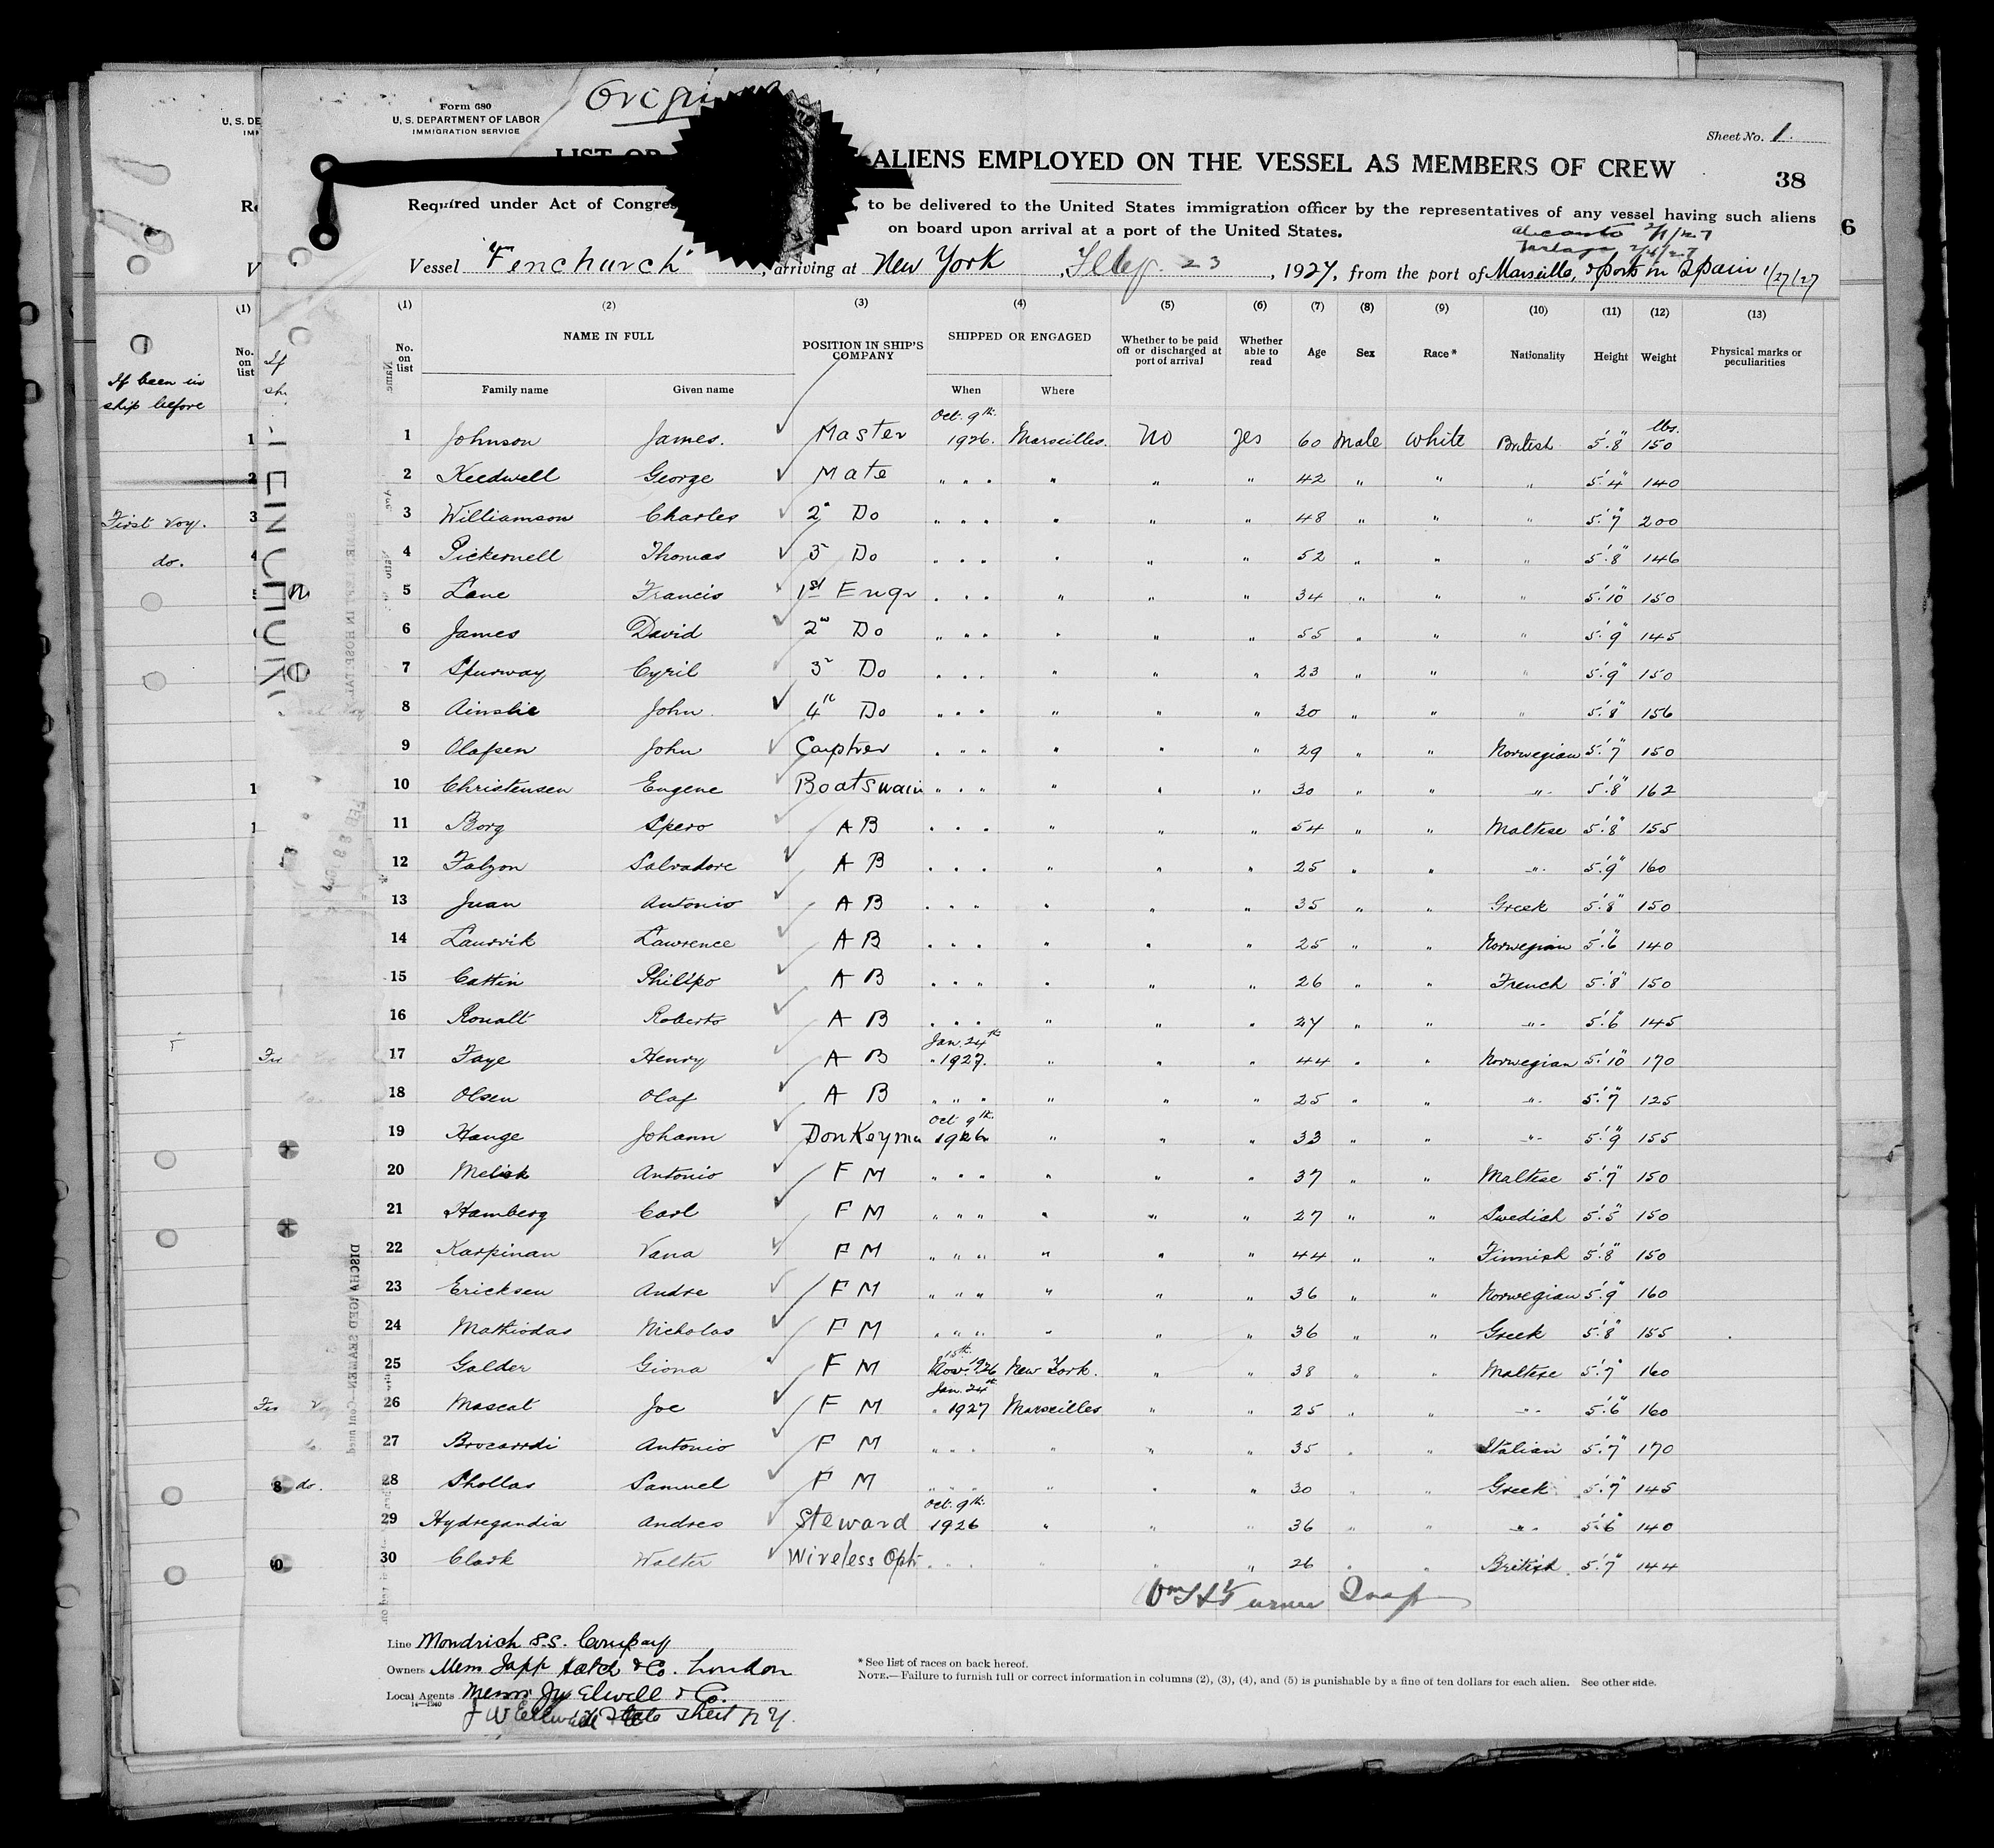 Original
Form 680
U. S. DEPARTMENT OF LABOR
IMMIGRATION SERVICE
Sheet No. 1.
LIST OR ALIENS EMPLOYED ON THE VESSEL AS MEMBERS OF CREW
38
Required under Act of Congres to be delivered to the United States immigration officer by the representatives of any vessel having such aliens
on board upon arrival at a port of the United States.
6
Vessel "Fenchurch", arriving at New York, 23, 1927, from the port of Marseille, & ports in Spain 1/27/27
(1) (2) (3) (4) (5) (6) (7) (8) (9) (10) (11) (12) (13)
No. on list NAME IN FULL POSITION IN SHIP'S COMPANY SHIPPED OR ENGAGED Whether to be paid off or discharged at port of arrival Whether able to read Age Sex Race* Nationality Height Weight Physical marks or peculiarities
Family name Given name When Where
1 Johnson James. Master Oct. 9th. 1926. Marseilles. No yes 60 Male White British 5'.8" lbs. 150
2 Keedwell George Mate " " " " " " 42 " " " 5'.4" 140
3 Williamson Charles 2" Do " " " " " " 48 " " " 5'.7" 200
4 Pickernell Thomas 3 Do " " " " " " 52 " " " 5'.8" 146
5 Lane Francis 1st Engr " " " " " " 34 " " " 5'.10" 150
6 James David 2nd Do " " " " " " 55 " " " 5'.9" 145
7 Spurway Cyril 3r Do " " " " " " 23 " " " 5'.9" 150
8 Ainslie John. 4th Do " " " " " " 30 " " " 5'.8" 156
9 Olafsen John Carptner " " " " " " 29 " " Norwegian 5'.7" 150
10 Christensen Eugene Boatswain " " " " " " 30 " " -"- 5'.8" 162
11 Borg Spero A B " " " " " " 54 " " Maltese 5'.8" 155
12 Falzon Salvadore A B " " " " " " 25 " " -"- 5'.9" 160
13 Juan Antonio A B " " " " " " 35 " " Greek 5'.8" 150
14 Landvik Lawrence A B " " " " " " 25 " " Norwegian 5'.6" 140
15 Cattin Philipo A B " " " " " " 26 " " French 5'.8" 150
16 Ronalt Roberto A B " " " " " " 27 " " -"- 5'.6" 145
17 Faye Henry A B Jan. 24th 1927. " " " 44 " " Norwegian 5'.10" 170
18 Olsen Olaf A B " " " " " " 25 " " -"- 5'.7" 125
19 Hauge Johann Donkeyma Oct 9th. 1926 " " " 33 " " -"- 5'.9" 155
20 Meliak Antonio F M " " " " " " 37 " " Maltese 5'.7" 150
21 Hamberg Carl F M " " " " " " 27 " " Swedish 5'.5" 150
22 Karpinan Vana F M " " " " " " 44 " " Finnish 5'.8" 150
23 Ericksen Andre F M " " " " " " 36 " " Norwegian 5'.9" 160
24 Mathiodas Nicholas F M " " " " " " 36 " " Greek 5'.8" 155
25 Galder Giona F M 15th. Nov. 1926 New York. " " 38 " " Maltese 5'.7" 160
26 Mascat Joe F M Jan. 24th " 1927 Marseilles " " 25 " " -"- 5'.6" 160
27 Brocarrdi Antonio F M " " " " " " 35 " " Italian 5'.7" 170
28 Shollas Samuel F M " " " " " " 30 " " Greek 5'.7" 145
29 Hydregandia Andres Steward Oct. 9th. 1926 " " " 36 " " -"- 5'.6" 140
30 Clark Walter Wireless Optr " " " " " " 26 " " British. 5'.7" 144
Turner Insp
Line Mondrich S.S. Company
Owners Messrs Japp Hatch & Co. London
Local Agents Messrs Jw Elwell & Co.
14—1940
State Street N Y.
* See list of races on back hereof.
NOTE.—Failure to furnish full or correct information in columns (2), (3), (4), and (5) is punishable by a fine of ten dollars for each alien. See other side.
U. S. DE
(1)
No. on list
If been in
ship before
First voy.
do.
do.